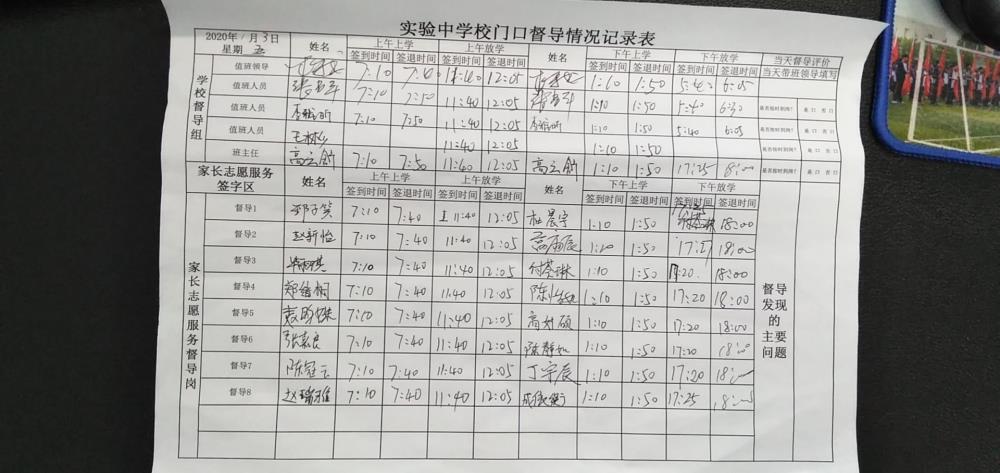 实验中学校门口督导情况记录表
2020年 1月3日 星期五 姓名 上午上学 上午放学 姓名 下午上学 下午放学 当天督导评价
签到时间 签退时间 签到时间 签退时间 签到时间 签退时间 签到时间 签退时间 当天带班领导填写
学校督导组
值班领导 7:10 7:40 11:40 12:05 1:10 1:50 5:40 6:05
值班人员 7:10 7:50 11:40 12:05 1:10 1:50 5:40 6:30 是否按时到岗? 是 口 否 口
值班人员 7:10 7:50 11:40 12:05 1:10 1:50 5:40 6:05 是否按时到岗? 是 口 否 口
值班人员 11:40 12:05 1:10 1:50 是否按时到岗? 是 口 否 口
班主任 7:10 7:50 11:40 12:05 1:10 1:50 17:25 18:00 是否按时到岗? 是 口 否 口
家长志愿服务签字区 姓名 上午上学 上午放学 姓名 下午上学 下午放学
签到时间 签退时间 签到时间 签退时间 签到时间 签退时间 签到时间 签退时间
家长志愿服务督导岗
督导1 7:10 7:40 11:40 12:05 杜晨宇 1:10 1:50 18:00
督导2 赵新怡 7:10 7:40 11:40 12:05 1:10 1:50 18:00
督导3 7:10 7:40 11:40 12:05 付荟琳 1:10 1:50 17:20 18:00
督导4 7:10 7:40 11:40 12:05 1:10 1:50 17:20 18:00
督导5 7:10 7:40 11:40 12:05 1:10 1:50 17:20 18:00
督导6 张嘉良 7:10 7:40 11:40 12:05 陈静如 1:10 1:50 17:20 18:00
督导7 陈冠云 7:10 7:40 11:40 12:05 丁宇辰 1:10 1:50 17:20 18:00
督导8 赵瑞雅 7:10 7:40 11:40 12:05 1:10 1:50 17:25 18:00
督导发现的主要问题